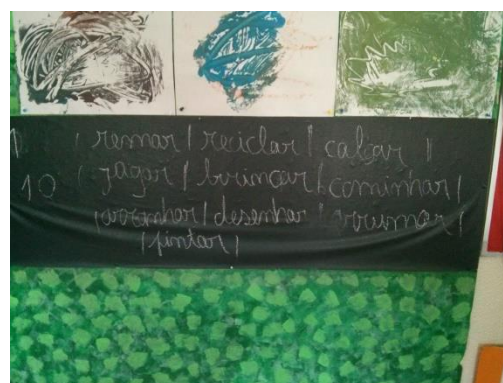 1 | remar | reciclar | calçar |
10 | jagar | brincar | caminhar |
| desenhar | arrumar |
| pintar |